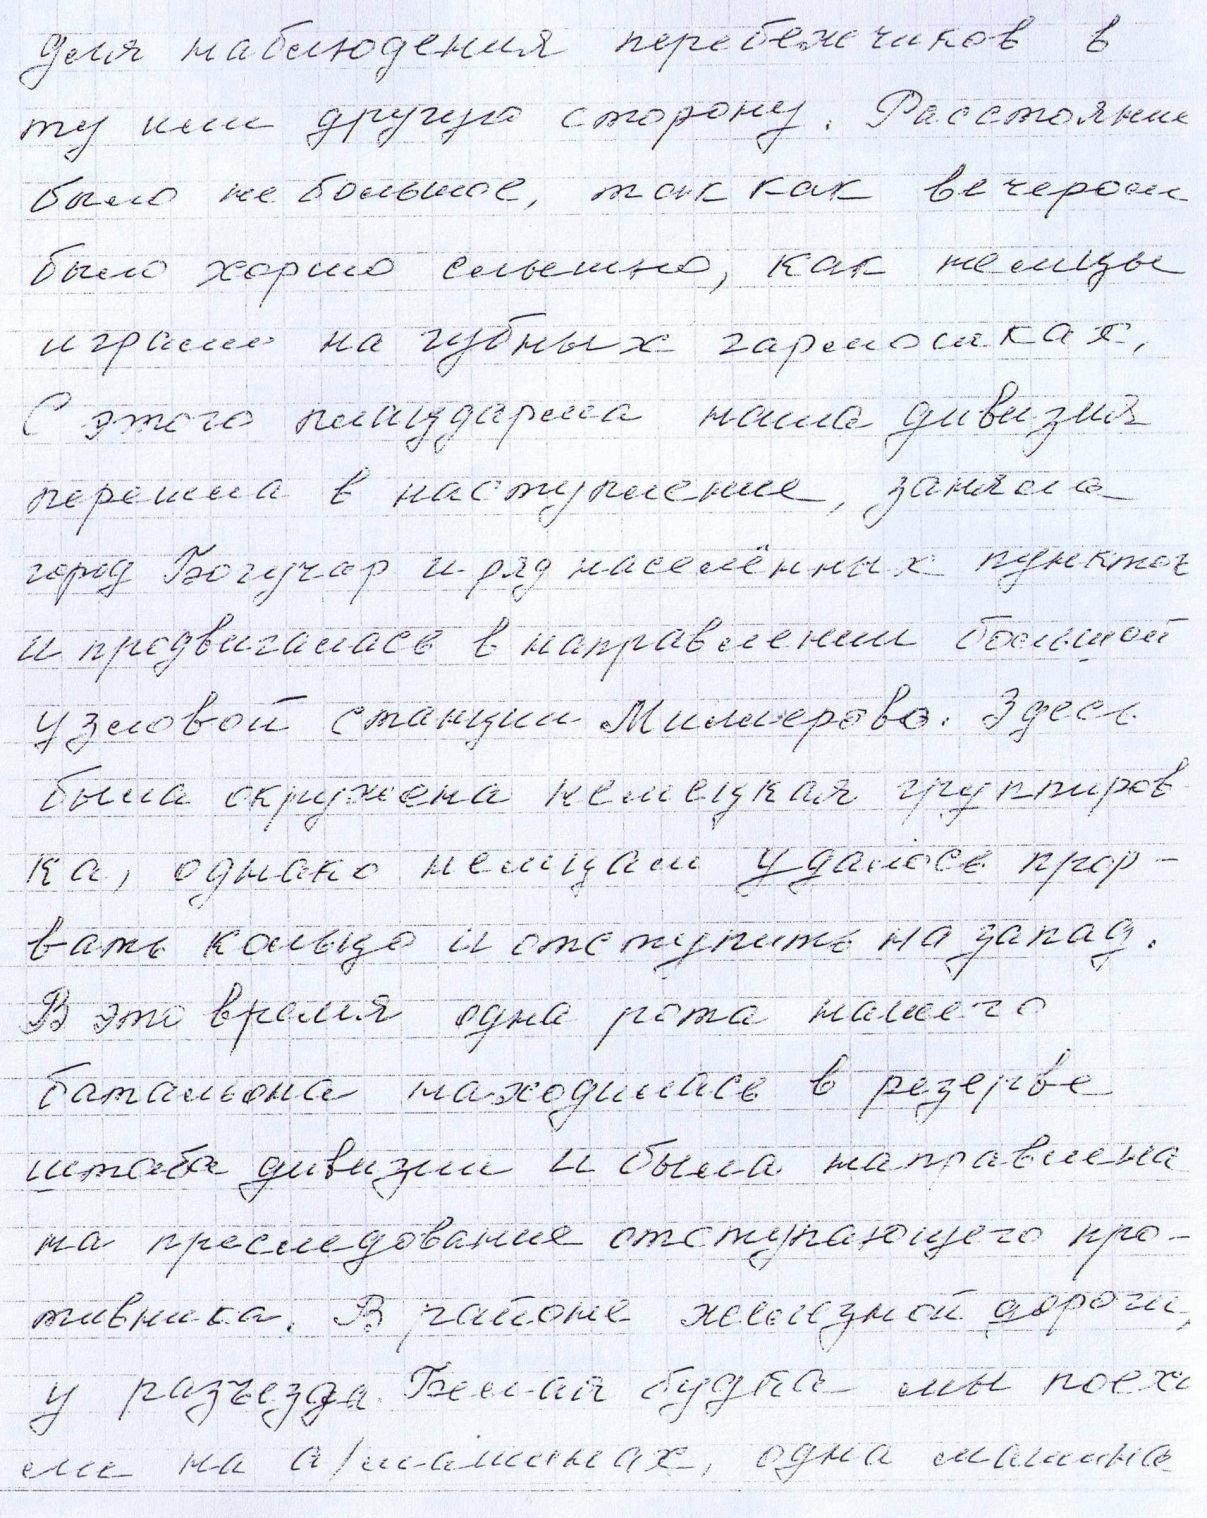 для наблюдения перебежчиков в
ту или другую сторону. Расстояние
было не большое, так как вечером
было хорошо слышно, как немцы
играли на губных гармошках,
С этого плацдарма наша дивизия
перешла в наступление, заняла
город Богучар и ряд населённых пунктов
и продвигалась в направлении большой
узловой станции Миллерово. Здесь
была окружена немецкая группиров
ка, однако немцам удалось прор-
вать кольцо и отступить на запад.
В это время одна рота нашего
батальона находилась в резерве
штаба дивизии и была направлена
на преследование отступающего про-
тивника. В районе железной дороги,
у разъезда Белая будка мы поеха
ли на а/машинах, одна машина